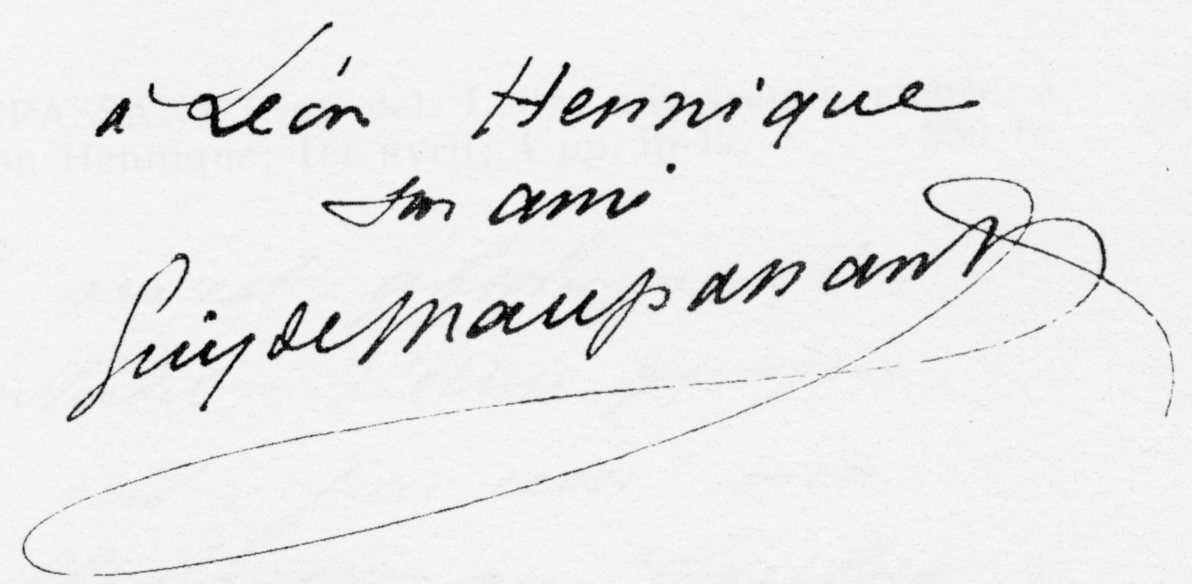 à Léon Hennique
son ami
Guy de Maupassant